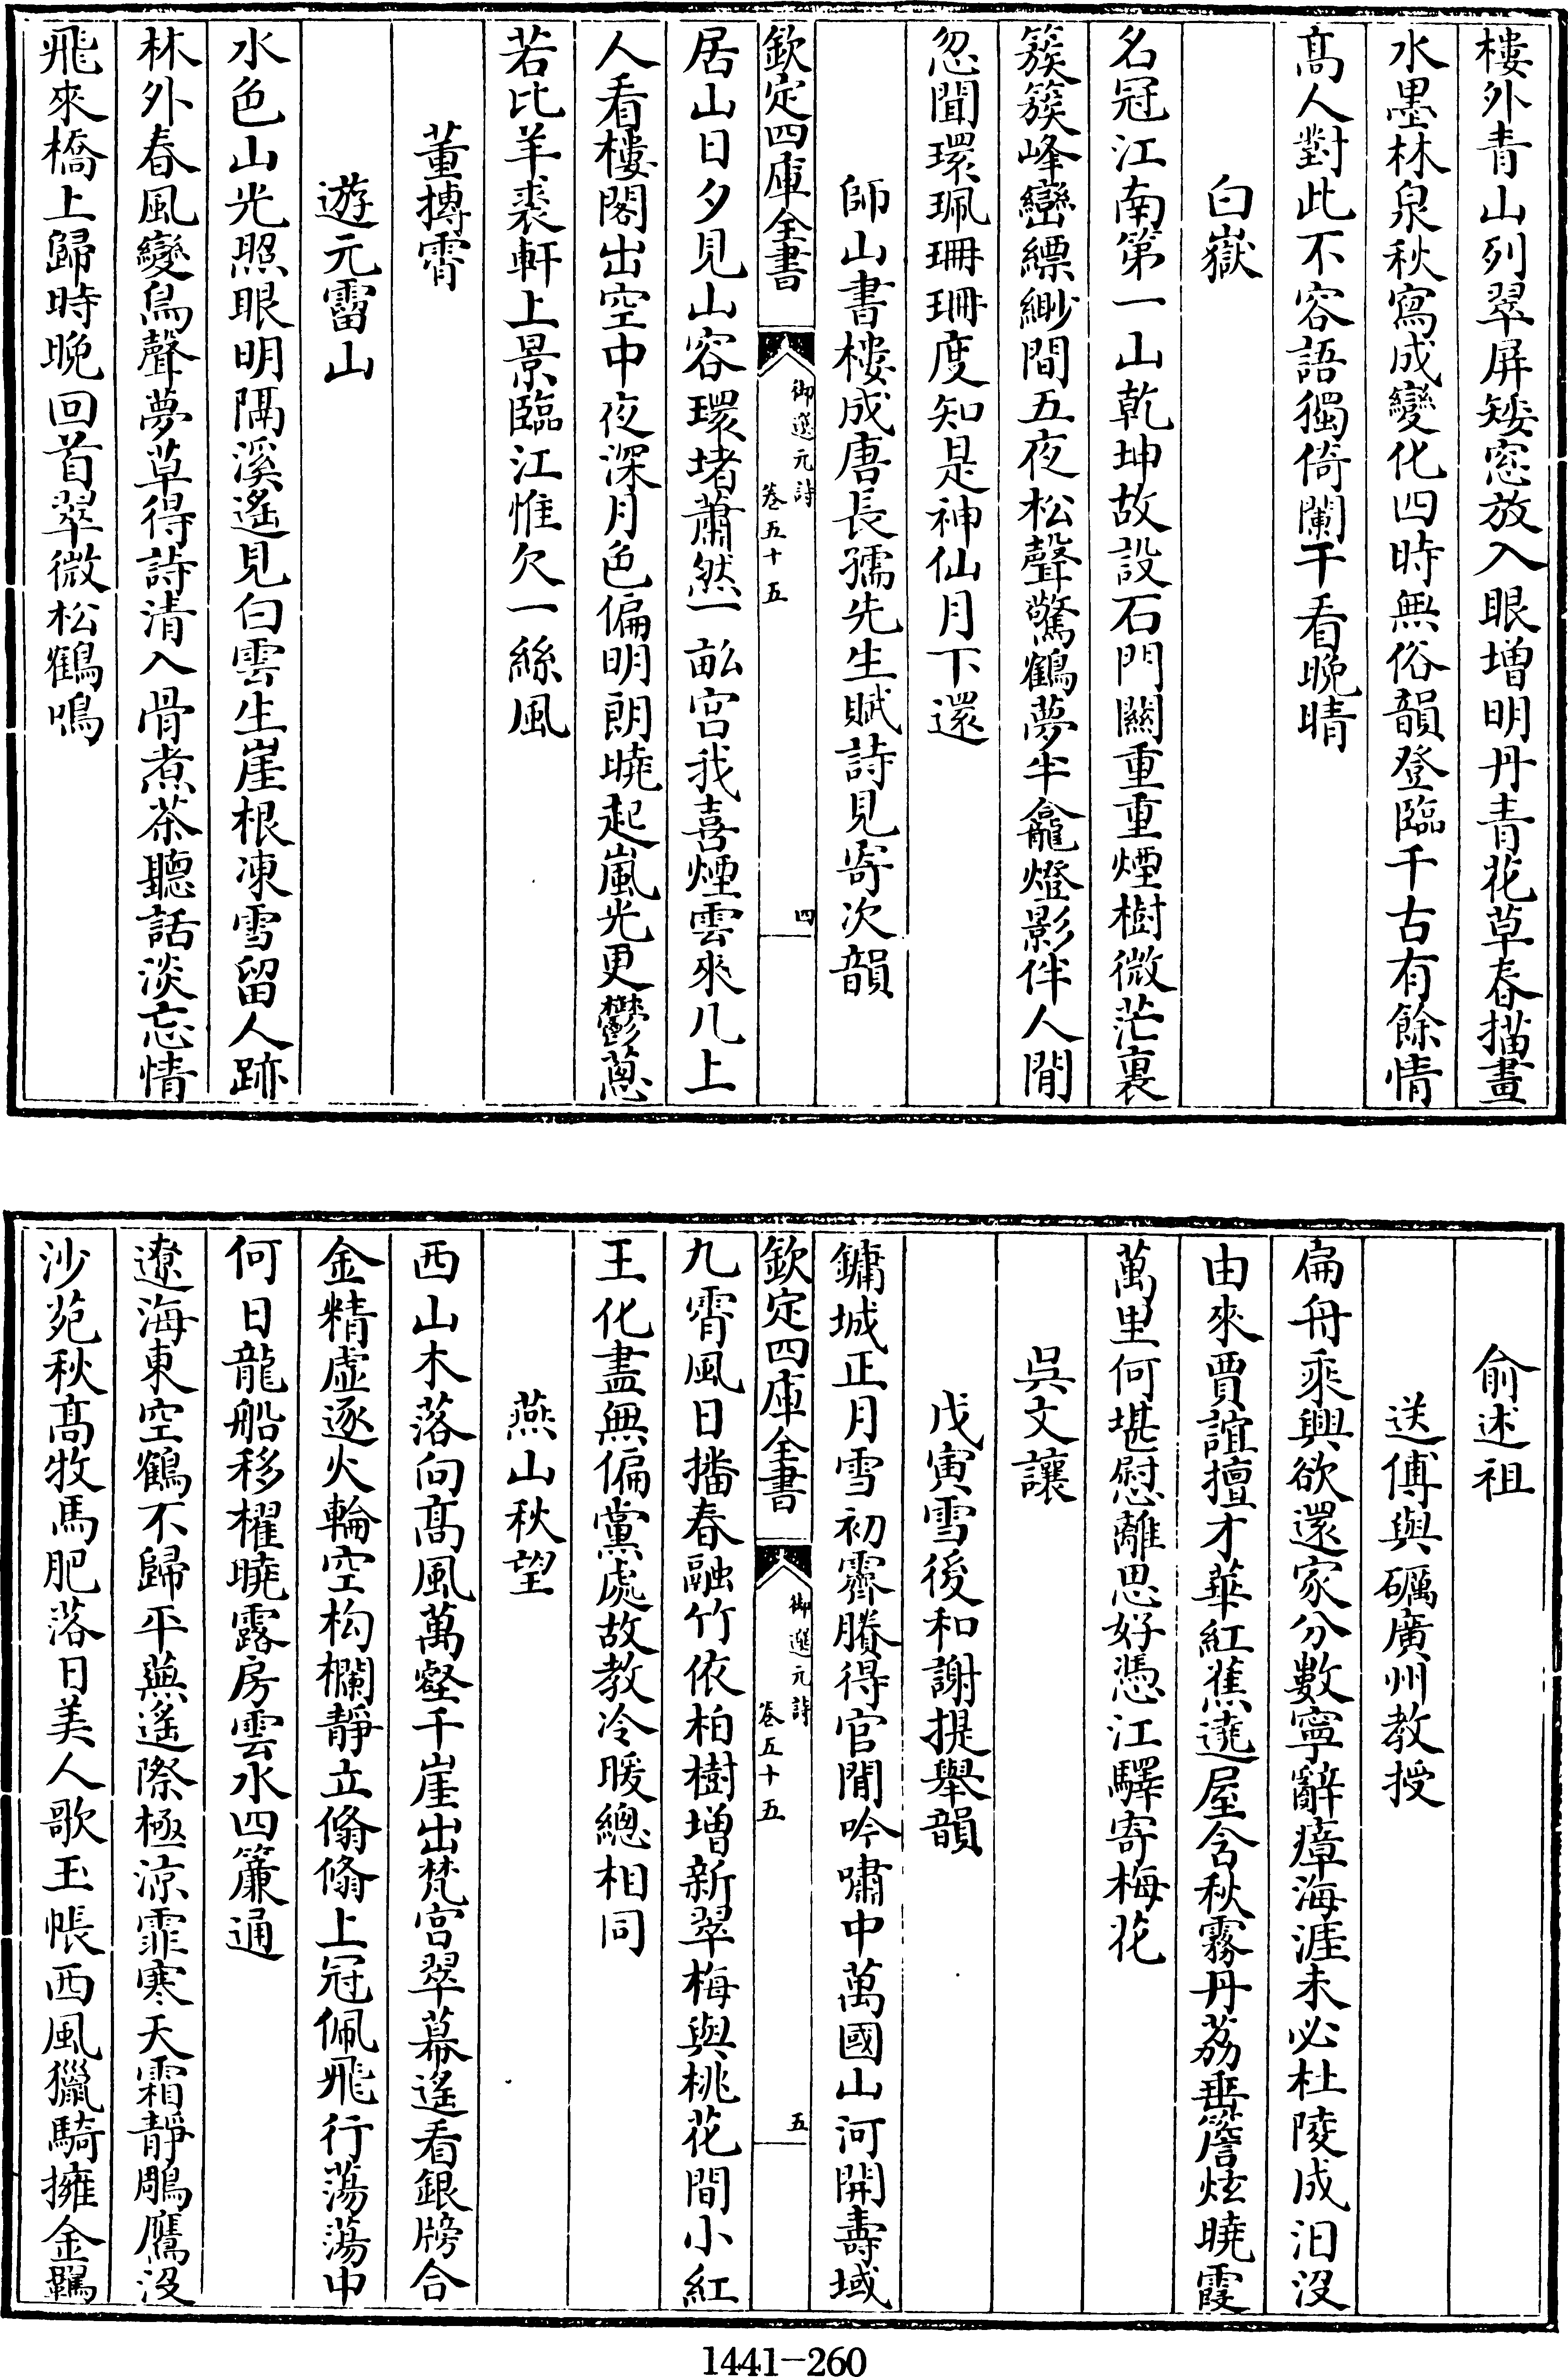 樓外青山列翠屏矮窓放入眼增明丹青花草春描畫
水墨林泉秋寫成變化四時無俗韻登臨千古有餘情
髙人對此不容語獨倚闌干看晚晴
白嶽
名冠江南第一山乾坤故設石門關重重煙樹微茫裏
簇簇峰巒縹緲間五夜松聲驚鶴夢半龕燈影伴人閒
忽聞環珮珊珊度知是神仙月下還
師山書樓成唐長孺先生賦詩見寄次韻
欽定四庫全書
御選元詩
卷五十五
四
居山日夕見山容環堵蕭然一畝宫我喜煙雲來几上
人看樓閣出空中夜深月色偏明朗曉起嵐光更鬱蔥
若比羊裘軒上景臨江惟欠一絲風
董摶霄
遊元靁山
水色山光照眼明隔溪遙見白雲生崖根凍雪留人跡
林外春風變鳥聲夢草得詩清入骨煮茶聽話淡忘情
飛來橋上歸時晚回首翠微松鶴鳴
俞述祖
送傅與礪廣州教授
扁舟乘興欲還家分數寧辭瘴海涯未必杜陵成汨沒
由來賈誼擅才華紅蕉遶屋含秋霧丹荔垂簷炫曉霞
萬里何堪慰離思好憑江驛寄梅花
吳文讓
戊寅雪後和謝提舉韻
鏞城正月雪初霽賸得官閒吟嘯中萬國山河開壽域
欽定四庫全書
御選元詩
卷五十五
五
九霄風日播春融竹依柏樹增新翠梅與桃花間小紅
王化盡無偏黨處故教冷暖總相同
燕山秋望
西山木落向髙風萬壑千崖出梵宫翠幕遙看銀牓合
金精虛逐火輪空构欄靜立翛翛上冠佩飛行蕩蕩中
何日龍船移櫂曉露房雲水四簾通
遼海東空鶴不歸平蕪遙際極涼霏寒天霜靜鵰鷹沒
沙苑秋髙牧馬肥落日美人歌玉帳西風獵騎擁金羈
1441-260